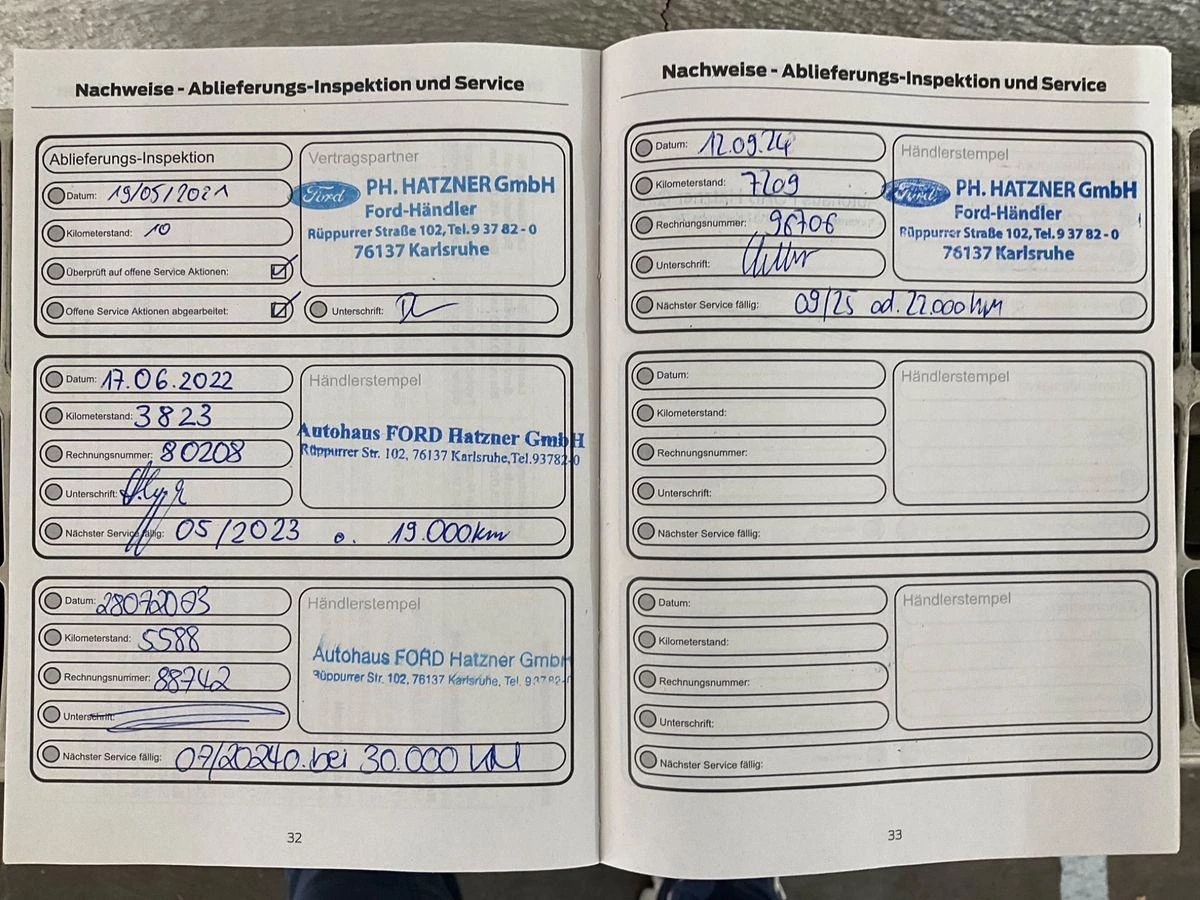 Nachweise - Ablieferungs-Inspektion und Service
Ablieferungs-Inspektion
Datum: 19/05/2021
Kilometerstand: 10
Überprüft auf offene Service Aktionen:
Offene Service Aktionen abgearbeitet:
Vertragspartner
Ford
PH. HATZNER GmbH
Ford-Händler
Rüppurrer Straße 102, Tel. 9 37 82 - 0
76137 Karlsruhe
Unterschrift:
Datum: 17.06.2022
Kilometerstand: 3823
Rechnungsnummer: 80208
Unterschrift:
Nächster Service fällig: 05/2023 o. 19.000km
Händlerstempel
Autohaus FORD Hatzner GmbH
Rüppurrer Str. 102, 76137 Karlsruhe, Tel. 93782-0
Datum: 28072023
Kilometerstand: 5588
Rechnungsnummer: 88742
Unterschrift:
Nächster Service fällig: 07/2024 o. bei 30.000 KM
Händlerstempel
Autohaus FORD Hatzner GmbH
Rüppurrer Str. 102, 76137 Karlsruhe, Tel. 93782-0
32
Nachweise - Ablieferungs-Inspektion und Service
Datum: 12.09.24
Kilometerstand: 7209
Rechnungsnummer: 96706
Unterschrift:
Nächster Service fällig: 09/25 od. 22.000km
Händlerstempel
Ford
PH. HATZNER GmbH
Ford-Händler
Rüppurrer Straße 102, Tel. 9 37 82 - 0
76137 Karlsruhe
Datum:
Kilometerstand:
Rechnungsnummer:
Unterschrift:
Nächster Service fällig:
Händlerstempel
Datum:
Kilometerstand:
Rechnungsnummer:
Unterschrift:
Nächster Service fällig:
Händlerstempel
33